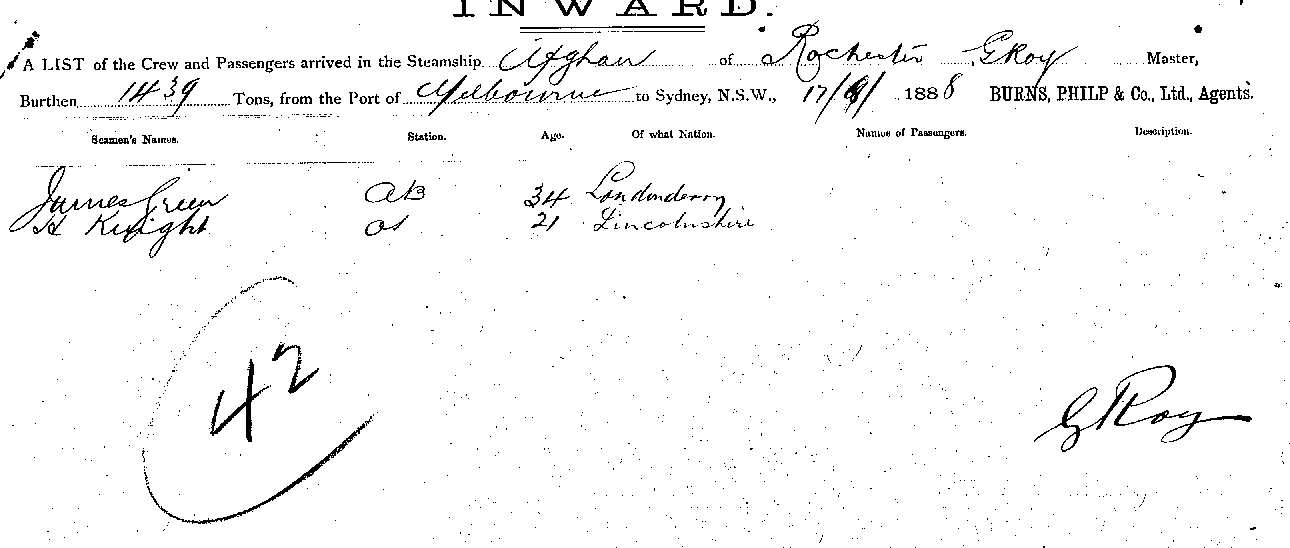 INWARD.
A LIST of the Crew and Passengers arrived in the Steamship Afghan of Rochester G Roy Master,
Burthen 1439 Tons, from the Port of Melbourne to Sydney, N.S.W., 17/9/ 1888 BURNS, PHILP & Co., Ltd., Agents.
Seamen's Names. Station. Age. Of what Nation. Names of Passengers. Description.
James Green AB 34 Londonderry
H Knight OS 21 Lincolnshire
42
G Roy